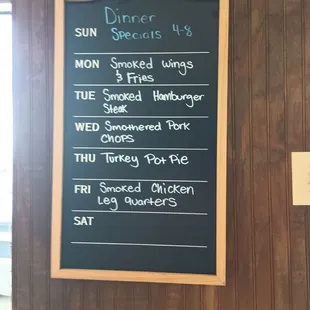 Dinner
SUN Specials 4-8
MON Smoked Wings
& Fries
TUE Smoked Hamburger
Steak
WED Smothered Pork
Chops
THU Turkey Pot Pie
FRI Smoked Chicken
Leg Quarters
SAT